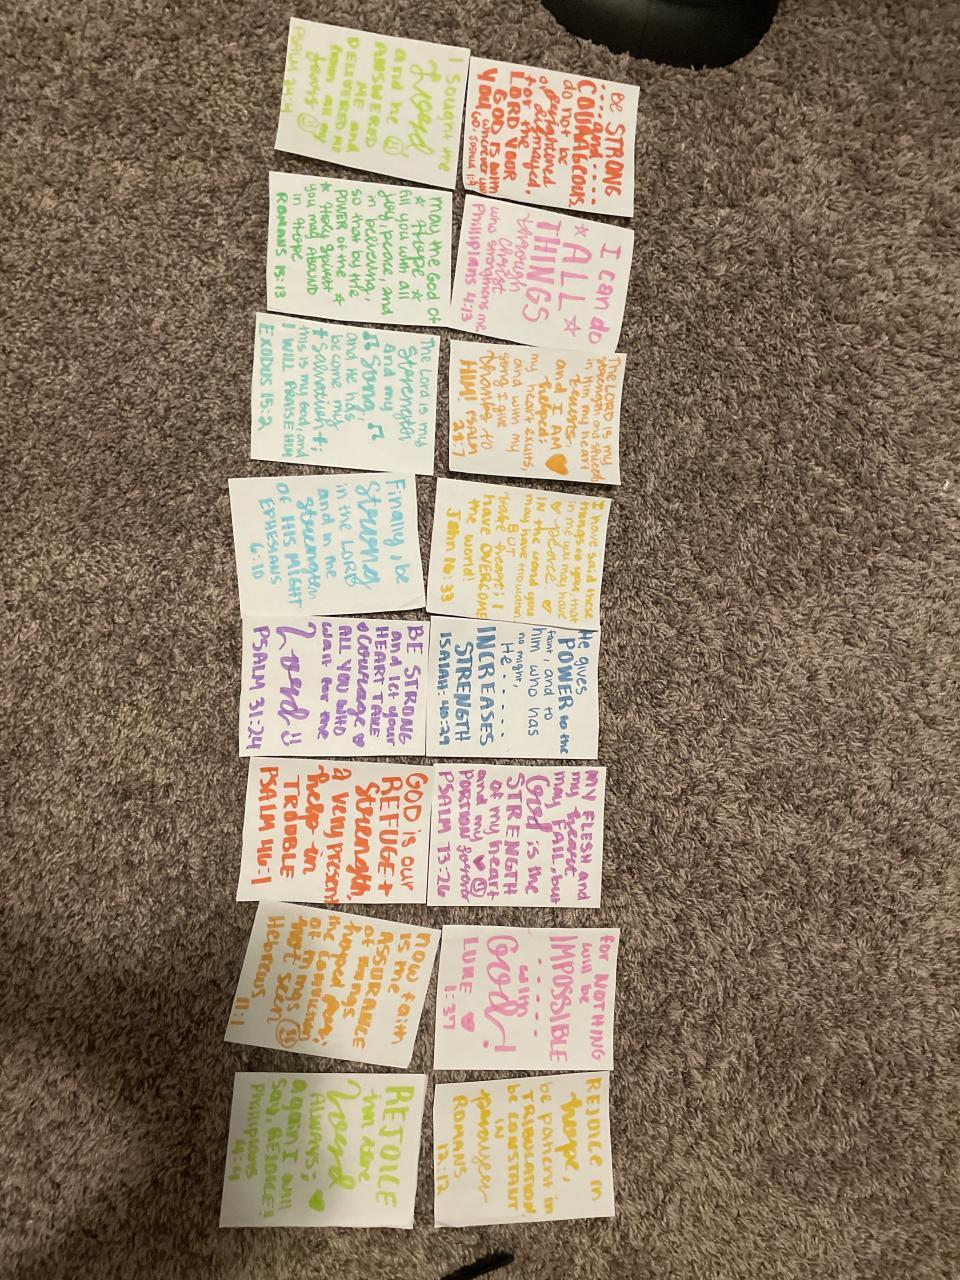 Be STRONG
....and....
COURAGEOUS.
do not be
frightened
or dismayed,
for the
LORD YOUR
GOD IS with
YOU wherever you
go. Joshua 1:9
I can do
ALL
THINGS
through
Christ
who strengthens me.
Phillipians 4:13
The LORD is my
strength and shield;
in Him my heart
trusts,
and I AM
helped;
my heart exults,
and with my
song I give
thanks to
HIM! PSALM
28:7
I have said these
things to you, that
in me you may have
peace.
IN the world you
may have tribulation
BUT
take heart; I
have OVERCOME
the world!
John 16:33
He gives
POWER to the
faint, and to
him who has
no might,
He.....
INCREASES
STRENGTH
ISAIAH: 40:29
MY FLESH and
my heart
may FAIL, but
God is the
STRENGTH
of my heart
and my
PORTION forever
PSALM 73:26
for NOTHING
will be
IMPOSSIBLE
with
God!
LUKE 1:37
REJOICE in
hope,
be patient in
TRIBULATION
be CONSTANT
in
prayer
ROMANS
12:12
I sought the
Lord
and he
ANSWERED
ME and
DELIVERED me
from all my
fears
PSALM 34:4
may the God of
Hope
fill you with all
joy, peace, and
in believing,
so that by the
POWER of the
Holy Spirit
you may ABOUND
in hope
ROMANS 15:13
The Lord is my
Strength
and my
Song
and He has
become my
salvation;
this is my God, and
I WILL PRAISE HIM
EXODUS 15:2
Finally, be
Strong
in the LORD
and in the
strength
OF HIS MIGHT
EPHESIANS
6:10
BE STRONG
and let your
HEART TAKE
courage
ALL YOU WHO
wait for the
Lord
PSALM 31:24
GOD is our
REFUGE +
Strength,
a very present
help in
TROUBLE
PSALM 46:1
now faith
is the
ASSURANCE
of things
hoped for,
the conviction
of things
not seen
Hebrews
11:1
REJOICE
in the
Lord
ALWAYS;
again I
will
say, REJOICE!
Phillipians